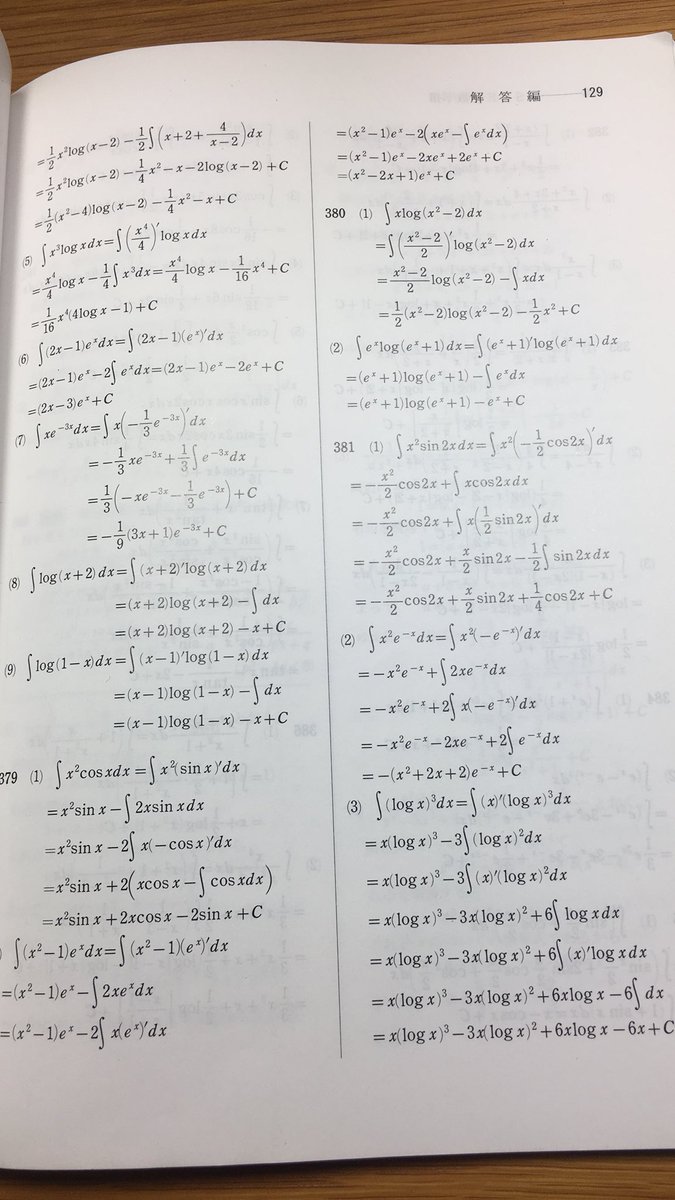 解答編 129
=\frac{1}{2}x²log(x−2)−\frac{1}{2}∫(x+2+\frac{4}{x−2})dx
=\frac{1}{2}x²log(x−2)−\frac{1}{4}x²−x−2log(x−2)+C
=\frac{1}{2}(x²−4)log(x−2)−\frac{1}{4}x²−x+C
(5) ∫x³logxdx=∫(\frac{x⁴}{4})′logxdx
=\frac{x⁴}{4}logx−\frac{1}{4}∫x³dx=\frac{x⁴}{4}logx−\frac{1}{16}x⁴+C
=\frac{1}{16}x⁴(4logx−1)+C
(6) ∫(2x−1)eˣdx=∫(2x−1)(eˣ)′dx
=(2x−1)eˣ−2∫eˣdx=(2x−1)eˣ−2eˣ+C
=(2x−3)eˣ+C
(7) ∫xe⁻³ˣdx=∫x(−\frac{1}{3}e⁻³ˣ)′dx
=−\frac{1}{3}xe⁻³ˣ+\frac{1}{3}∫e⁻³ˣdx
=\frac{1}{3}(−xe⁻³ˣ−\frac{1}{3}e⁻³ˣ)+C
=−\frac{1}{9}(3x+1)e⁻³ˣ+C
(8) ∫log(x+2)dx=∫(x+2)′log(x+2)dx
=(x+2)log(x+2)−∫dx
=(x+2)log(x+2)−x+C
(9) ∫log(1−x)dx=∫(x−1)′log(1−x)dx
=(x−1)log(1−x)−∫dx
=(x−1)log(1−x)−x+C
379 (1) ∫x²cosxdx=∫x²(sinx)′dx
=x²sinx−∫2xsinxdx
=x²sinx−2∫x(−cosx)′dx
=x²sinx+2(xcosx−∫cosxdx)
=x²sinx+2xcosx−2sinx+C
) ∫(x²−1)eˣdx=∫(x²−1)(eˣ)′dx
=(x²−1)eˣ−∫2xeˣdx
=(x²−1)eˣ−2∫x(eˣ)′dx
=(x²−1)eˣ−2(xeˣ−∫eˣdx)
=(x²−1)eˣ−2xeˣ+2eˣ+C
=(x²−2x+1)eˣ+C
380 (1) ∫xlog(x²−2)dx
=∫(\frac{x²−2}{2})′log(x²−2)dx
=\frac{x²−2}{2}log(x²−2)−∫xdx
=\frac{1}{2}(x²−2)log(x²−2)−\frac{1}{2}x²+C
(2) ∫eˣlog(eˣ+1)dx=∫(eˣ+1)′log(eˣ+1)dx
=(eˣ+1)log(eˣ+1)−∫eˣdx
=(eˣ+1)log(eˣ+1)−eˣ+C
381 (1) ∫x²sin2xdx=∫x²(−\frac{1}{2}cos2x)′dx
=−\frac{x²}{2}cos2x+∫xcos2xdx
=−\frac{x²}{2}cos2x+∫x(\frac{1}{2}sin2x)′dx
=−\frac{x²}{2}cos2x+\frac{x}{2}sin2x−\frac{1}{2}∫sin2xdx
=−\frac{x²}{2}cos2x+\frac{x}{2}sin2x+\frac{1}{4}cos2x+C
(2) ∫x²e⁻ˣdx=∫x²(−e⁻ˣ)′dx
=−x²e⁻ˣ+∫2xe⁻ˣdx
=−x²e⁻ˣ+2∫x(−e⁻ˣ)′dx
=−x²e⁻ˣ−2xe⁻ˣ+2∫e⁻ˣdx
=−(x²+2x+2)e⁻ˣ+C
(3) ∫(logx)³dx=∫(x)′(logx)³dx
=x(logx)³−3∫(logx)²dx
=x(logx)³−3∫(x)′(logx)²dx
=x(logx)³−3x(logx)²+6∫logxdx
=x(logx)³−3x(logx)²+6∫(x)′logxdx
=x(logx)³−3x(logx)²+6xlogx−6∫dx
=x(logx)³−3x(logx)²+6xlogx−6x+C